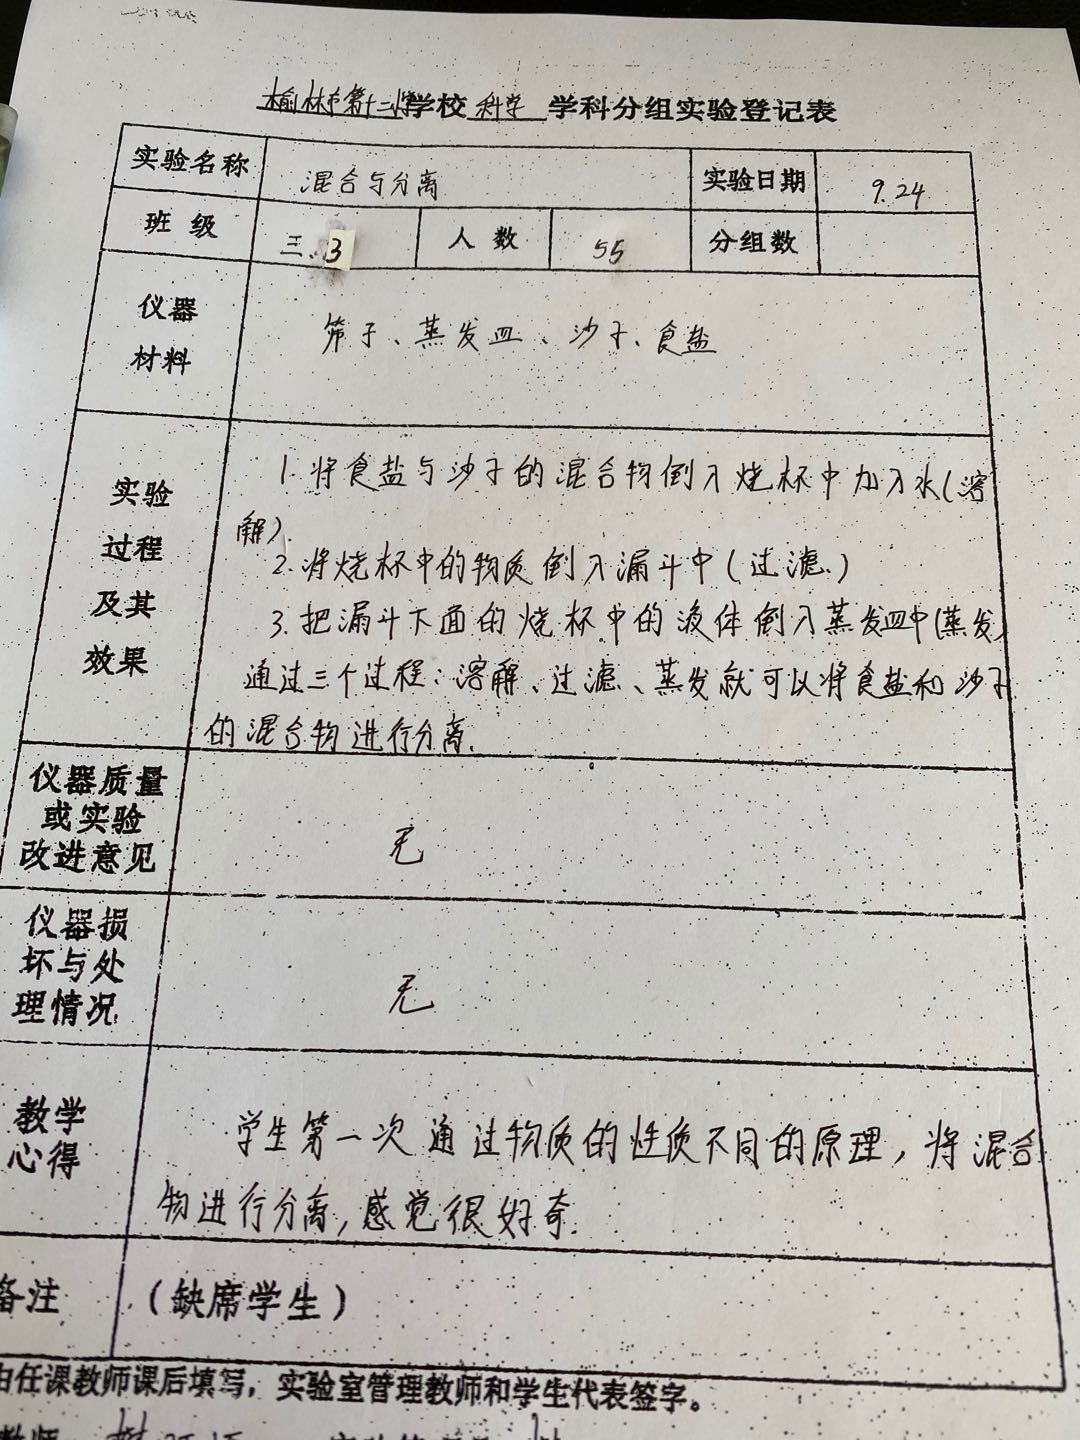 榆林市第十二小学校 科学 学科分组实验登记表
实验名称 混合与分离 实验日期 9.24
班 级 三.3 人 数 55 分组数
仪器
材料
筛子、蒸发皿、沙子、食盐
实验
过程
及其
效果
1.将食盐与沙子的混合物倒入烧杯中加入水(溶
解).
2.将烧杯中的物质倒入漏斗中(过滤.)
3.把漏斗下面的烧杯中的液体倒入蒸发皿中(蒸发)
通过三个过程:溶解、过滤、蒸发就可以将食盐和沙子
的混合物进行分离.
仪器质量
或实验
改进意见
无
仪器损
坏与处
理情况
无
教学
心得
学生第一次通过物质的性质不同的原理,将混合
物进行分离,感觉很好奇.
备注 (缺席学生)
由任课教师课后填写,实验室管理教师和学生代表签字。